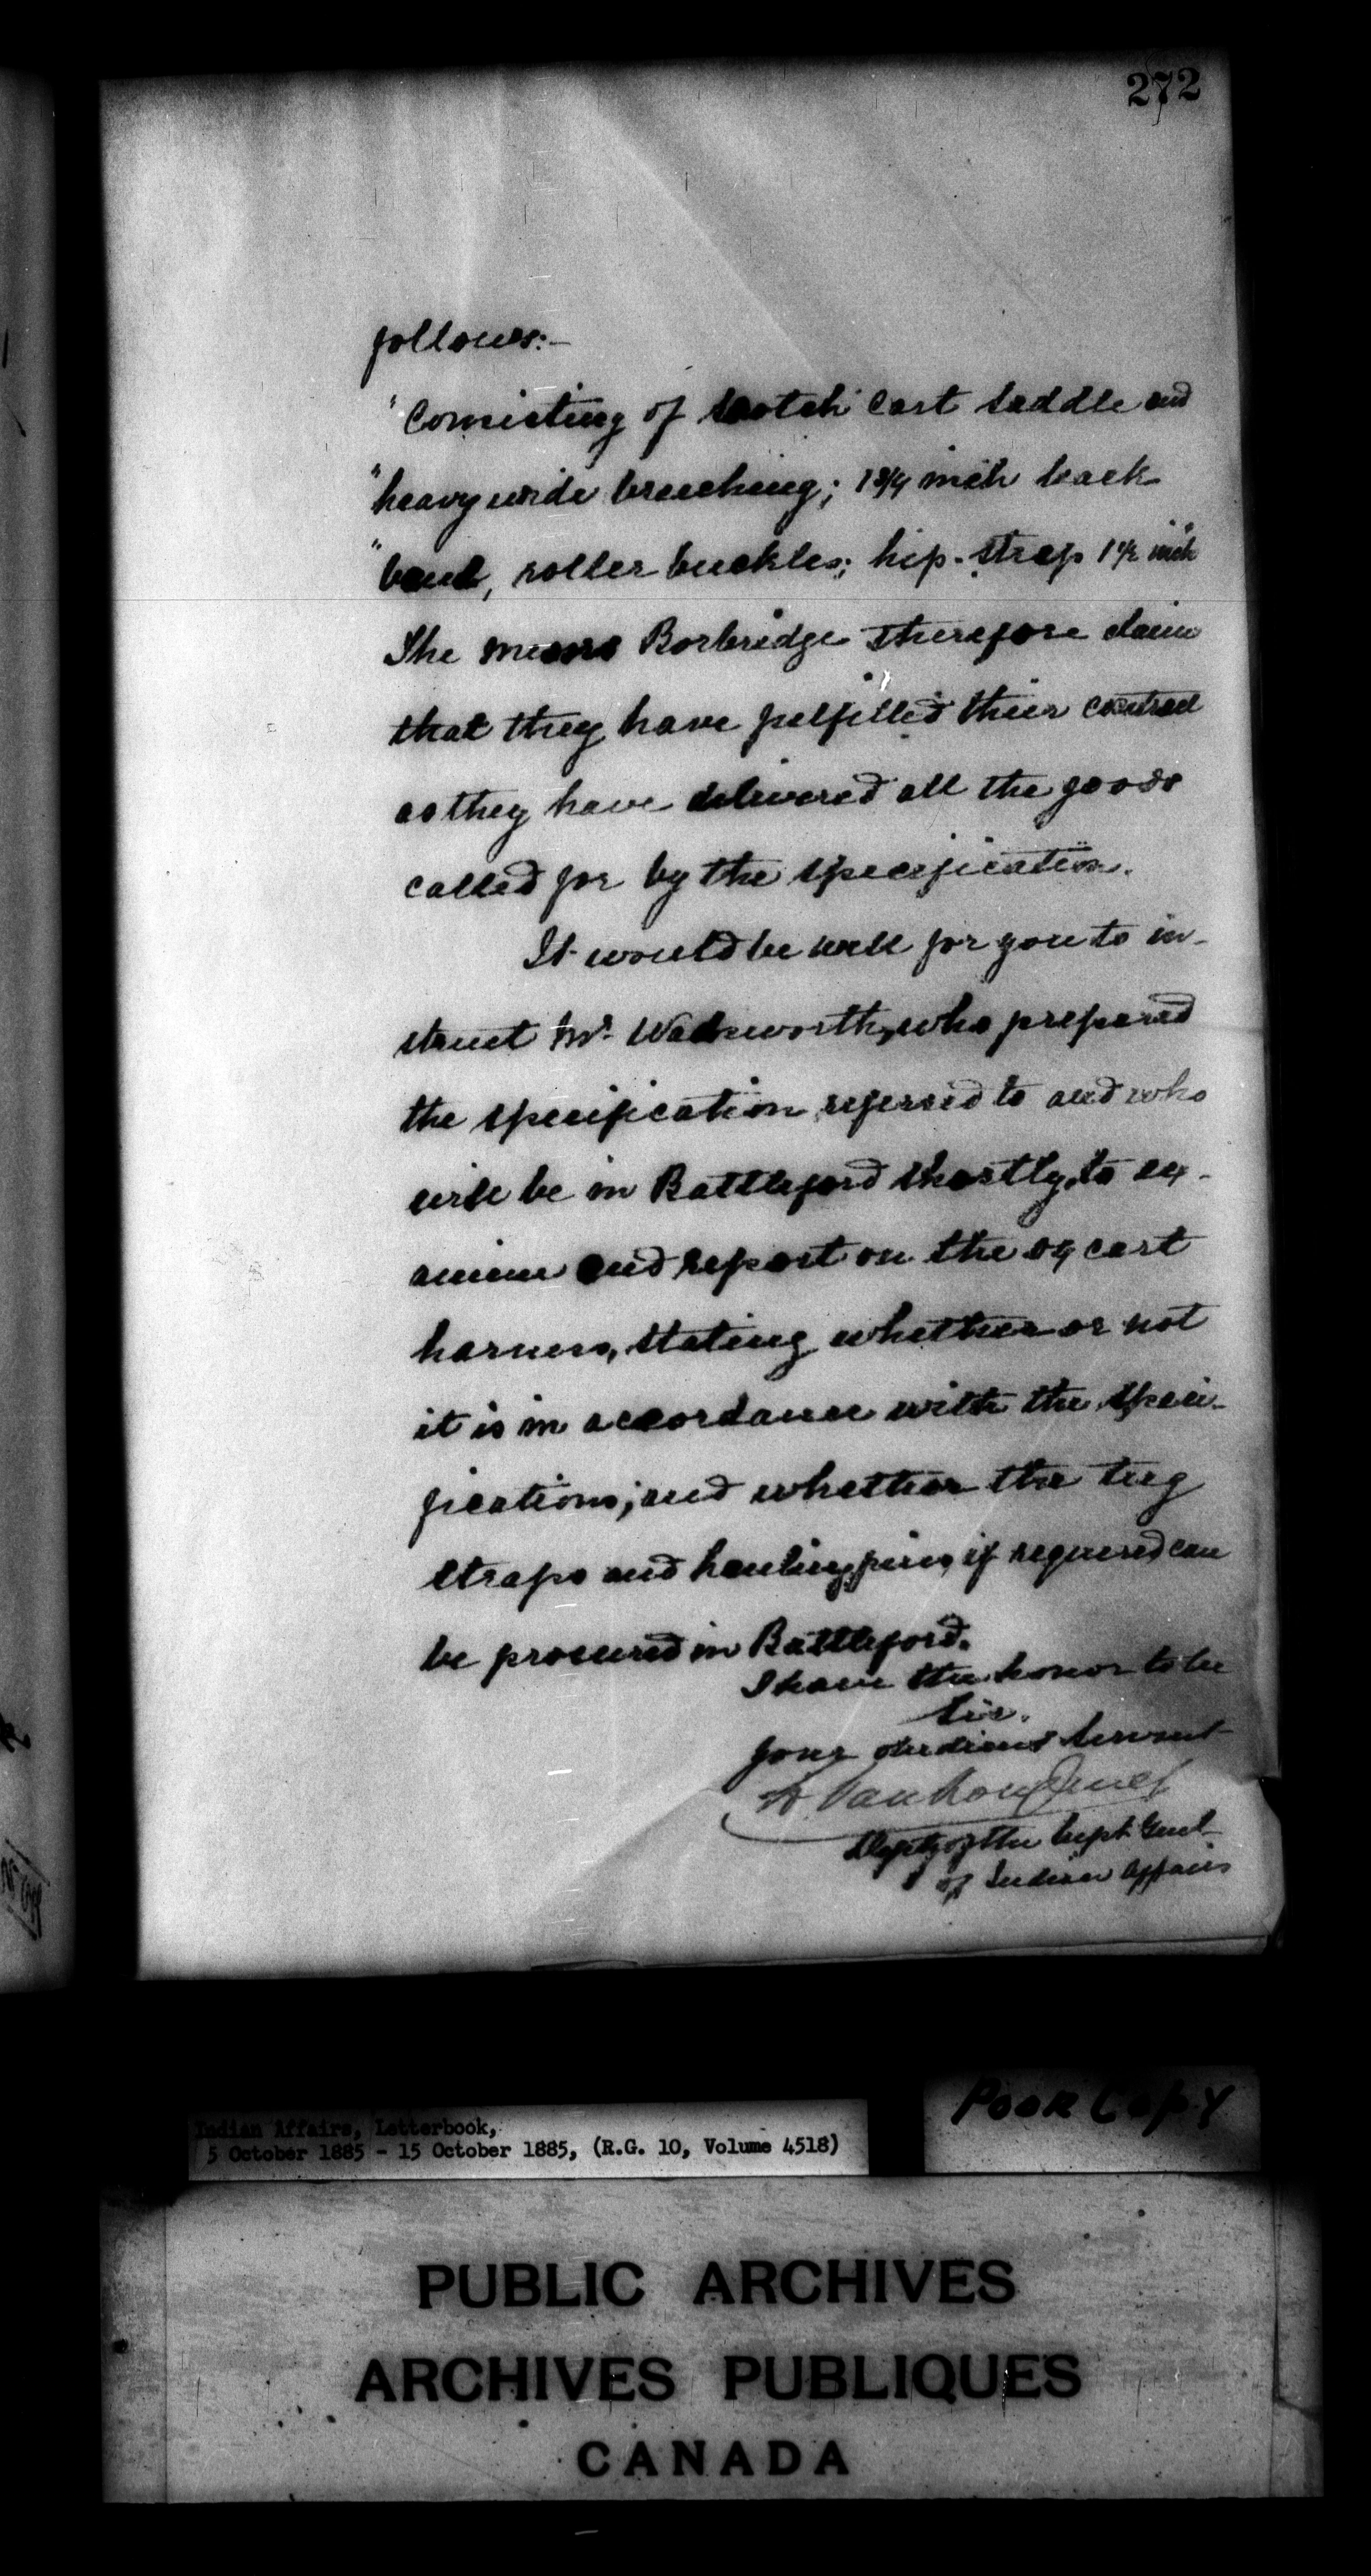 272
follows:—
"Consisting of Scotch cart saddle and
"heavy wide breeching; 1 3/4 inch back
"band, roller buckles; hip-strap 1 1/2 inch"
The Messrs Borbridge therefore claim
that they have fulfilled their contract
as they have delivered all the goods
called for by the specification.
It would be well for you to in-
struct Mr. Wadsworth, who prepared
the specification referred to and who
will be in Battleford shortly, to ex-
amine and report on the ox cart
harness, stating whether or not
it is in accordance with the speci-
fications; and whether the tug
straps and hauling pins, if required can
be procured in Battleford.
I have the honor to be
Sir.
Your obedient servant
L. VanKoughnet
Depty of the Supt. Genl
of Indian Affairs
POOR COPY
Indian Affairs, Letterbook,
5 October 1885 - 15 October 1885, (R.G. 10, Volume 4518)
PUBLIC ARCHIVES
ARCHIVES PUBLIQUES
CANADA